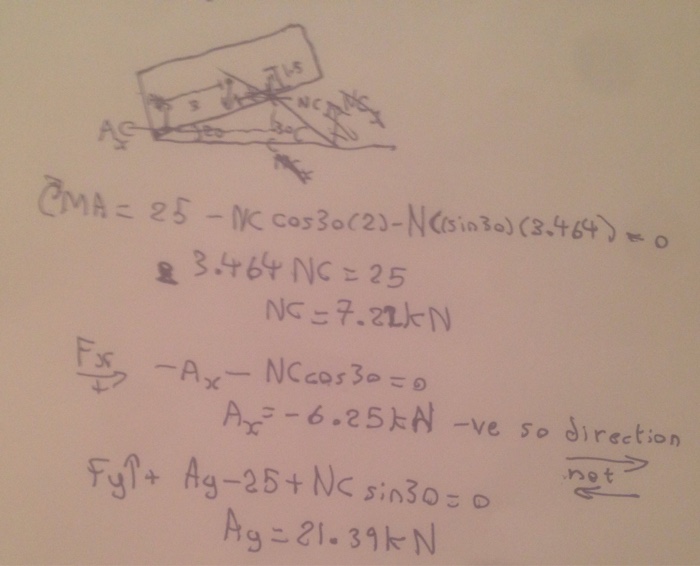 1.5
3
NC
A
x
20
30
C
MA = 25 - NC cos30(2) - NC(sin30)(3.464) = 0
3.464 NC = 25
NC = 7.22kN
Fx
+
-Ax - NCcos30 = 0
Ax = -6.25kN -ve so direction
not
Fy↑+ Ay-25+NC sin30=0
Ay=21.39kN